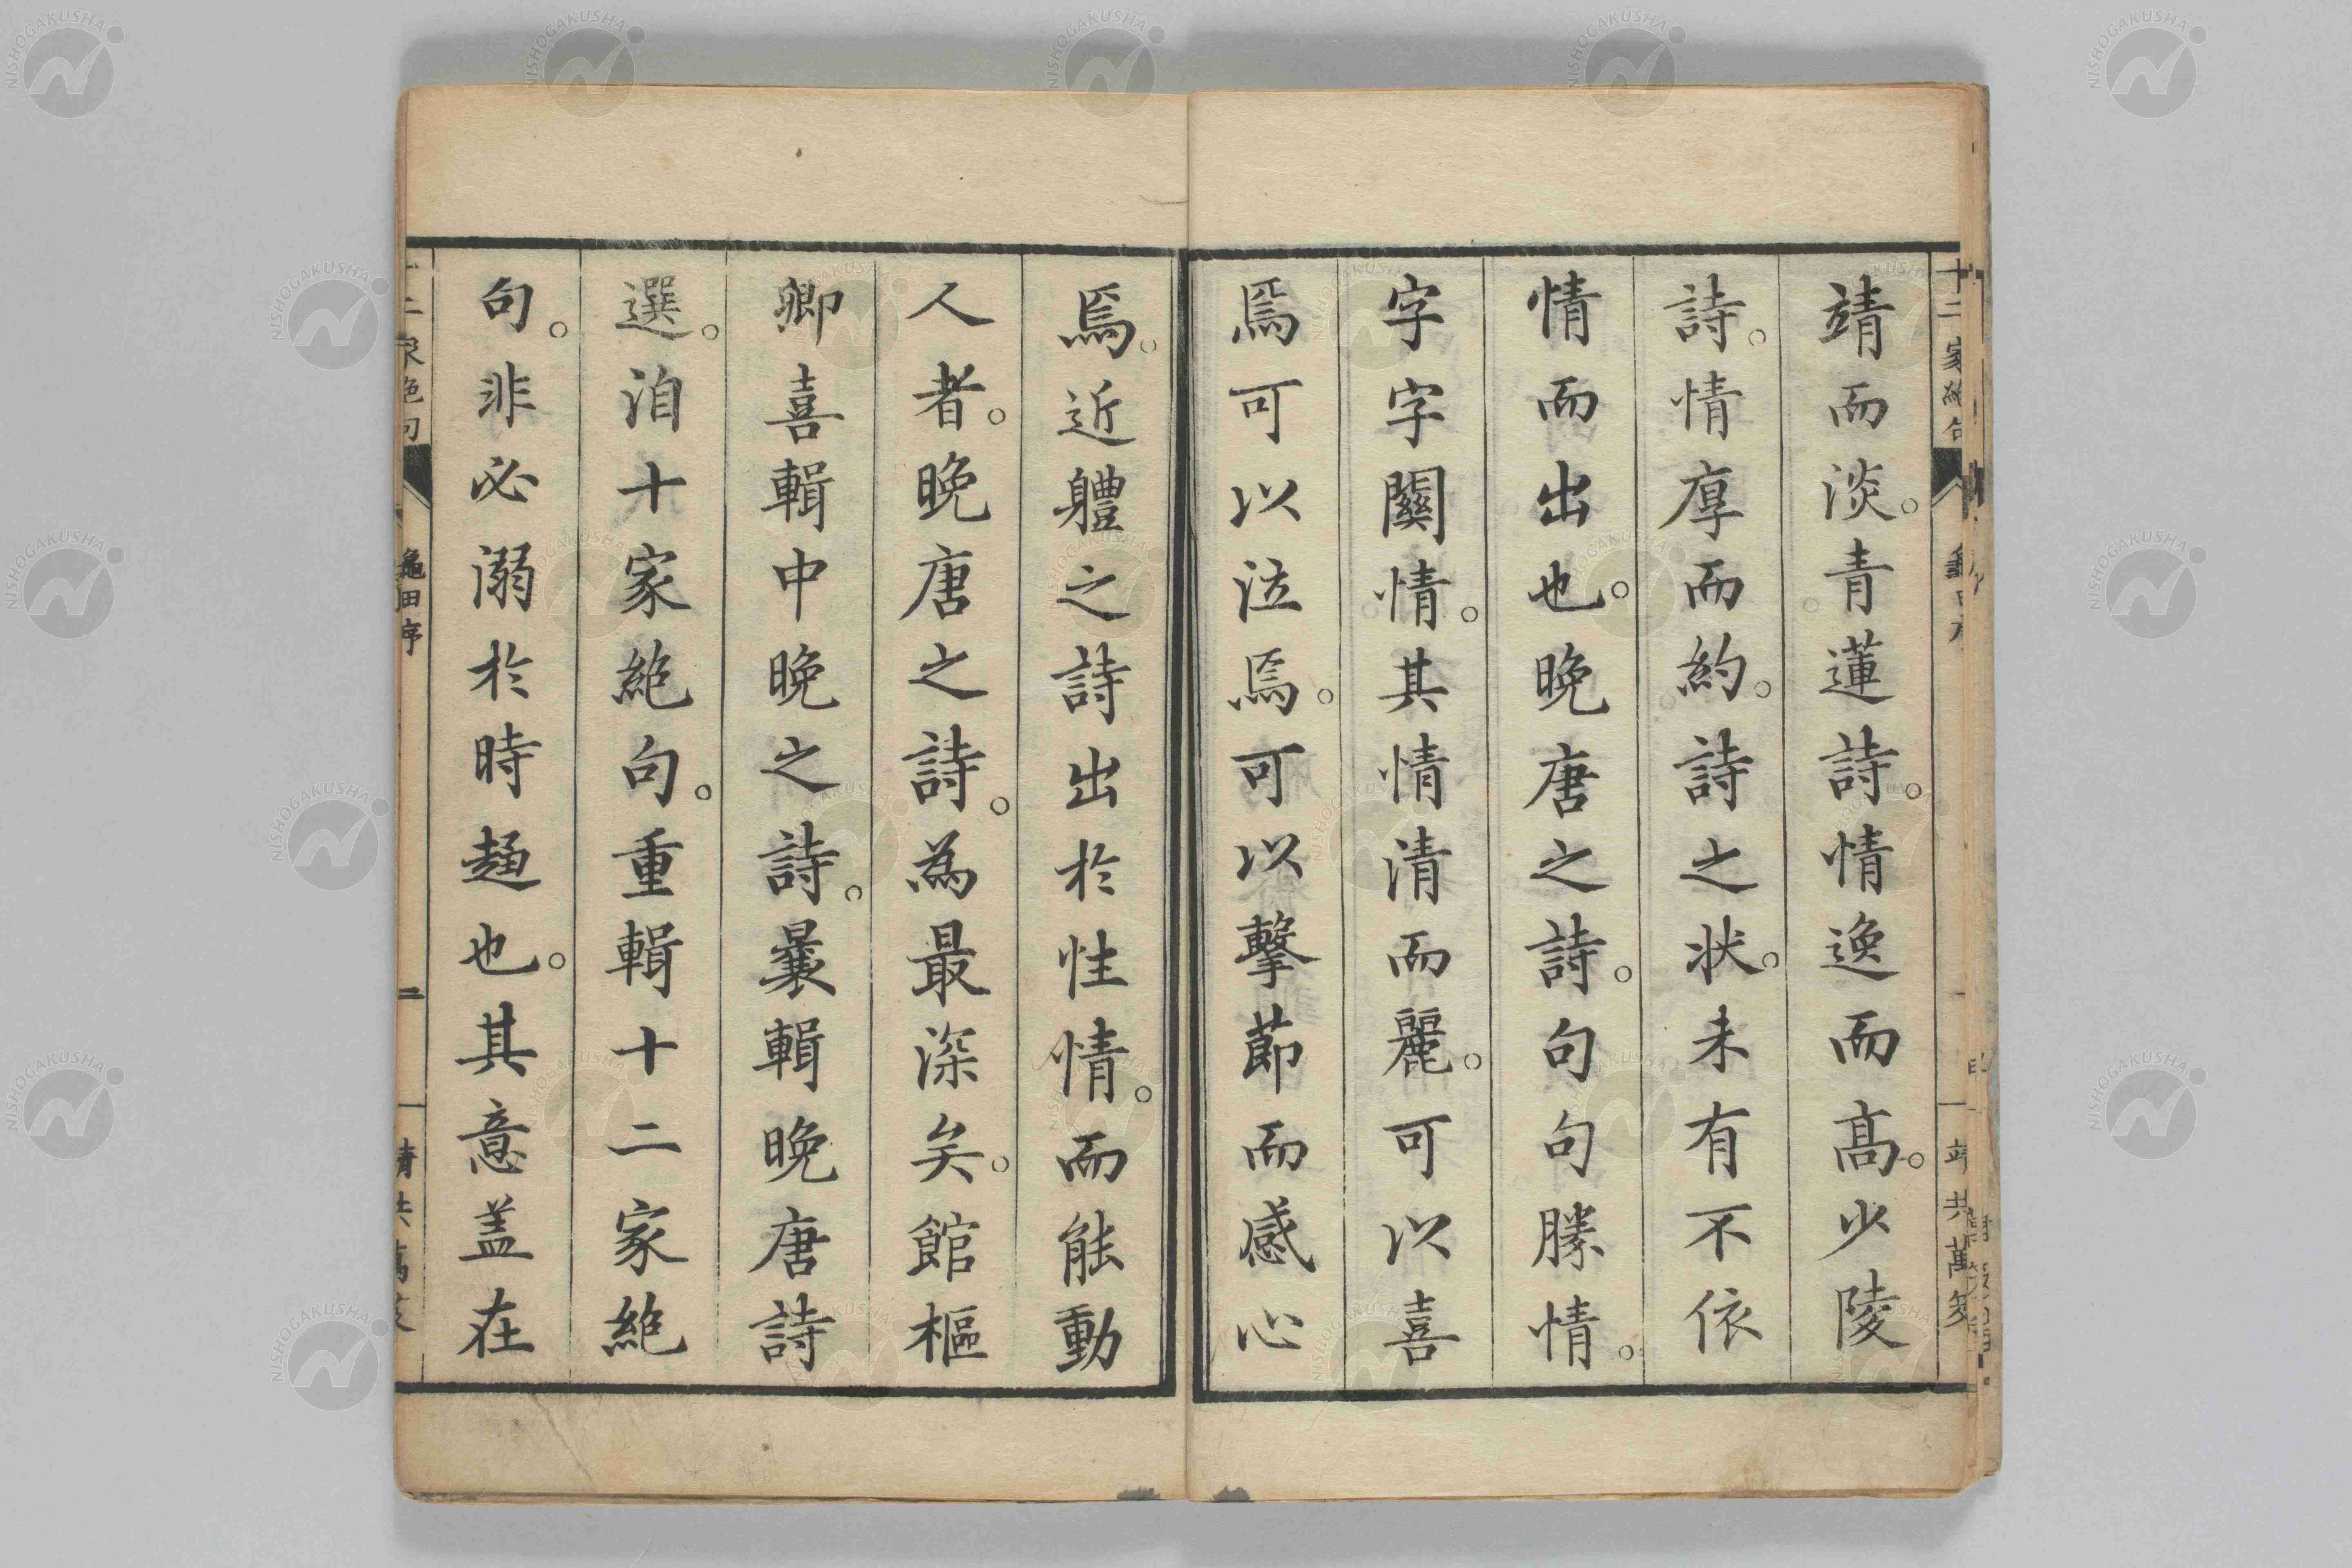 靖而淡。青蓮詩。情逸而高。少陵
詩。情厚而約。詩之状。未有不依
情而出也。晩唐之詩。句句勝情。
字字關情。其情清而麗。可以喜
焉可以泣焉。可以擊節而感心
焉。近體之詩出於性情。而能動
人者。晩唐之詩。為最深矣。館樞
卿喜輯中晩之詩。曩輯晩唐詩
選。洎十家絶句。重輯十二家絶
句。非必溺於時趨也。其意盖在
十二家絶句
龜田序
二
NISHOGAKUSHA